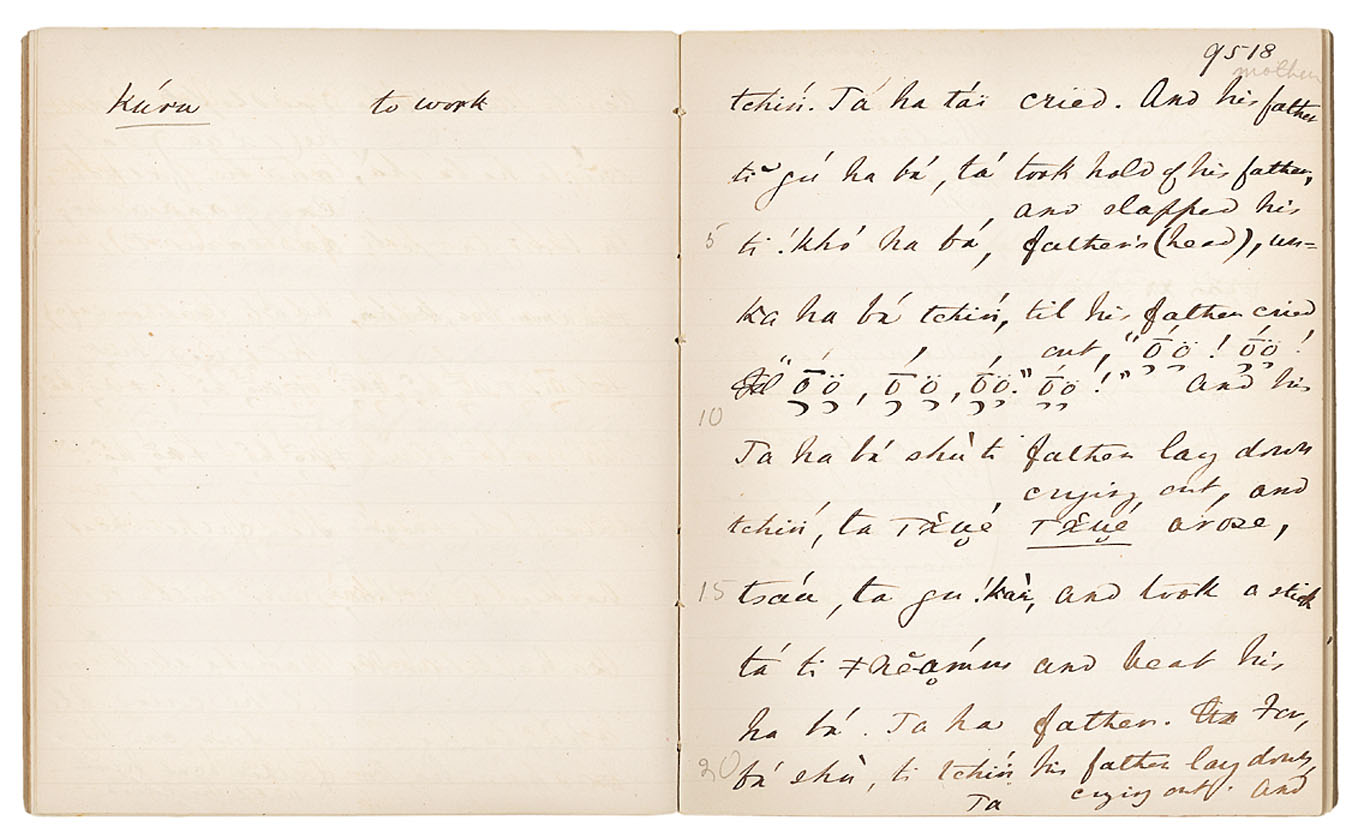 Kúru to work
9518
mother
tchiń. Tá ha táï cried. And his father
ti gú ha bá, tá took hold of his father,
, and slapped his
5 ti !khó ha bá, father's (head), un=
ka ha bá tchiń, til his father cried
out, "ṓö! ṓö!
"ṓö, ṓö, ṓö." ṓö!" And his
10
Ta ha bá shù ti father lay down
, crying out, and
tchiń, ta Tǎṵé Tǎṵé arose,
15 tsáu, ta gu !kàṅ, and took a stick
tá ti ǂnĕ́amm and beat his
ha bá. Ta ha father. For,
20 bá shù, ti tchiń his father lay down,
Ta crying out. And